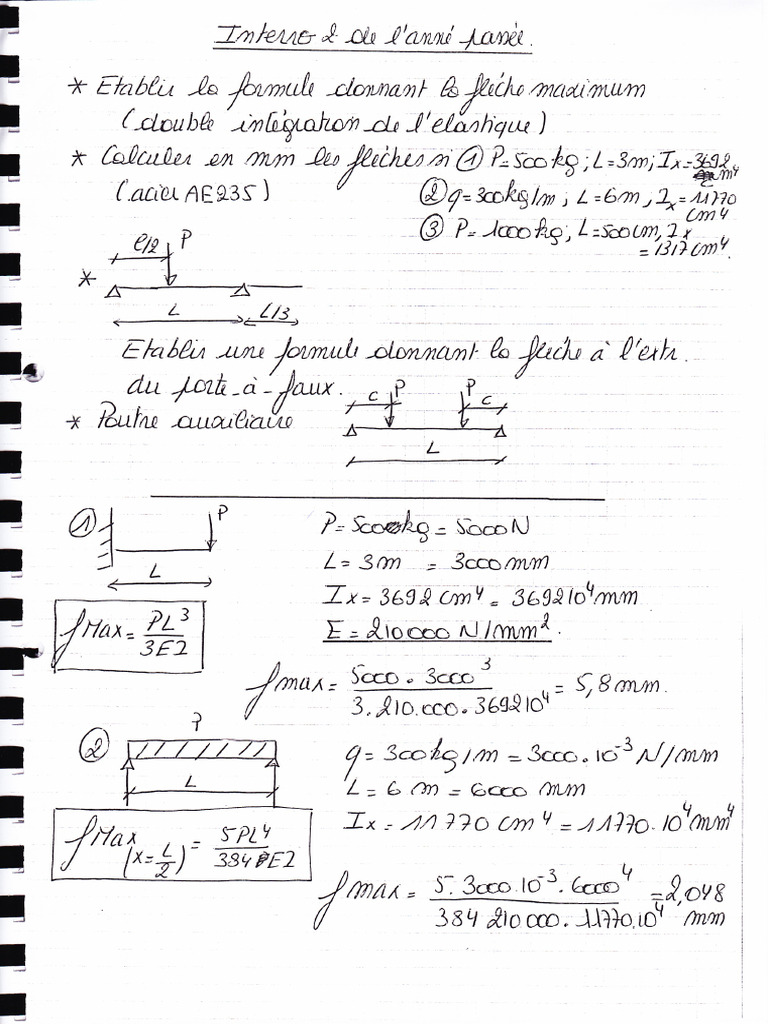 Interro 2 de l'anné passée.
* Etablir la formule donnant la flèche maximum
(double intégration de l'elastique)
* Calculer en mm les flèches si ① P=500kg; L=3m; Ix=3692 cm⁴
(acier AE235) ② q=300kg/m; L=6m, Ix=11770 cm⁴
③ P=1000kg; L=500cm, Ix = 1317cm⁴.
l/2 P
*
L L/3
Etablir une formule donnant la flèche à l'extr.
du porte-à-faux.
c P P c
* Poutre auxiliaire
L
① P
L
P= 500kg = 5000N
L= 3m = 3000mm
Ix = 3692 cm⁴ = 3692 10⁴ mm
E = 210000 N/mm².
fMax = PL³ / 3EI
fmax = 5000 . 3000³ / 3.210.000.3692 10⁴ = 5,8 mm.
②
L
q= 300kg/m = 3000.10⁻³ N/mm
L= 6m = 6000 mm
Ix = 11770 cm⁴ = 11770.10⁴ mm⁴
fMax (x=L/2) = 5PL⁴ / 384 EI
fmax = 5.3000.10⁻³.6000⁴ / 384 210000.11770.10⁴ = 2,048 mm